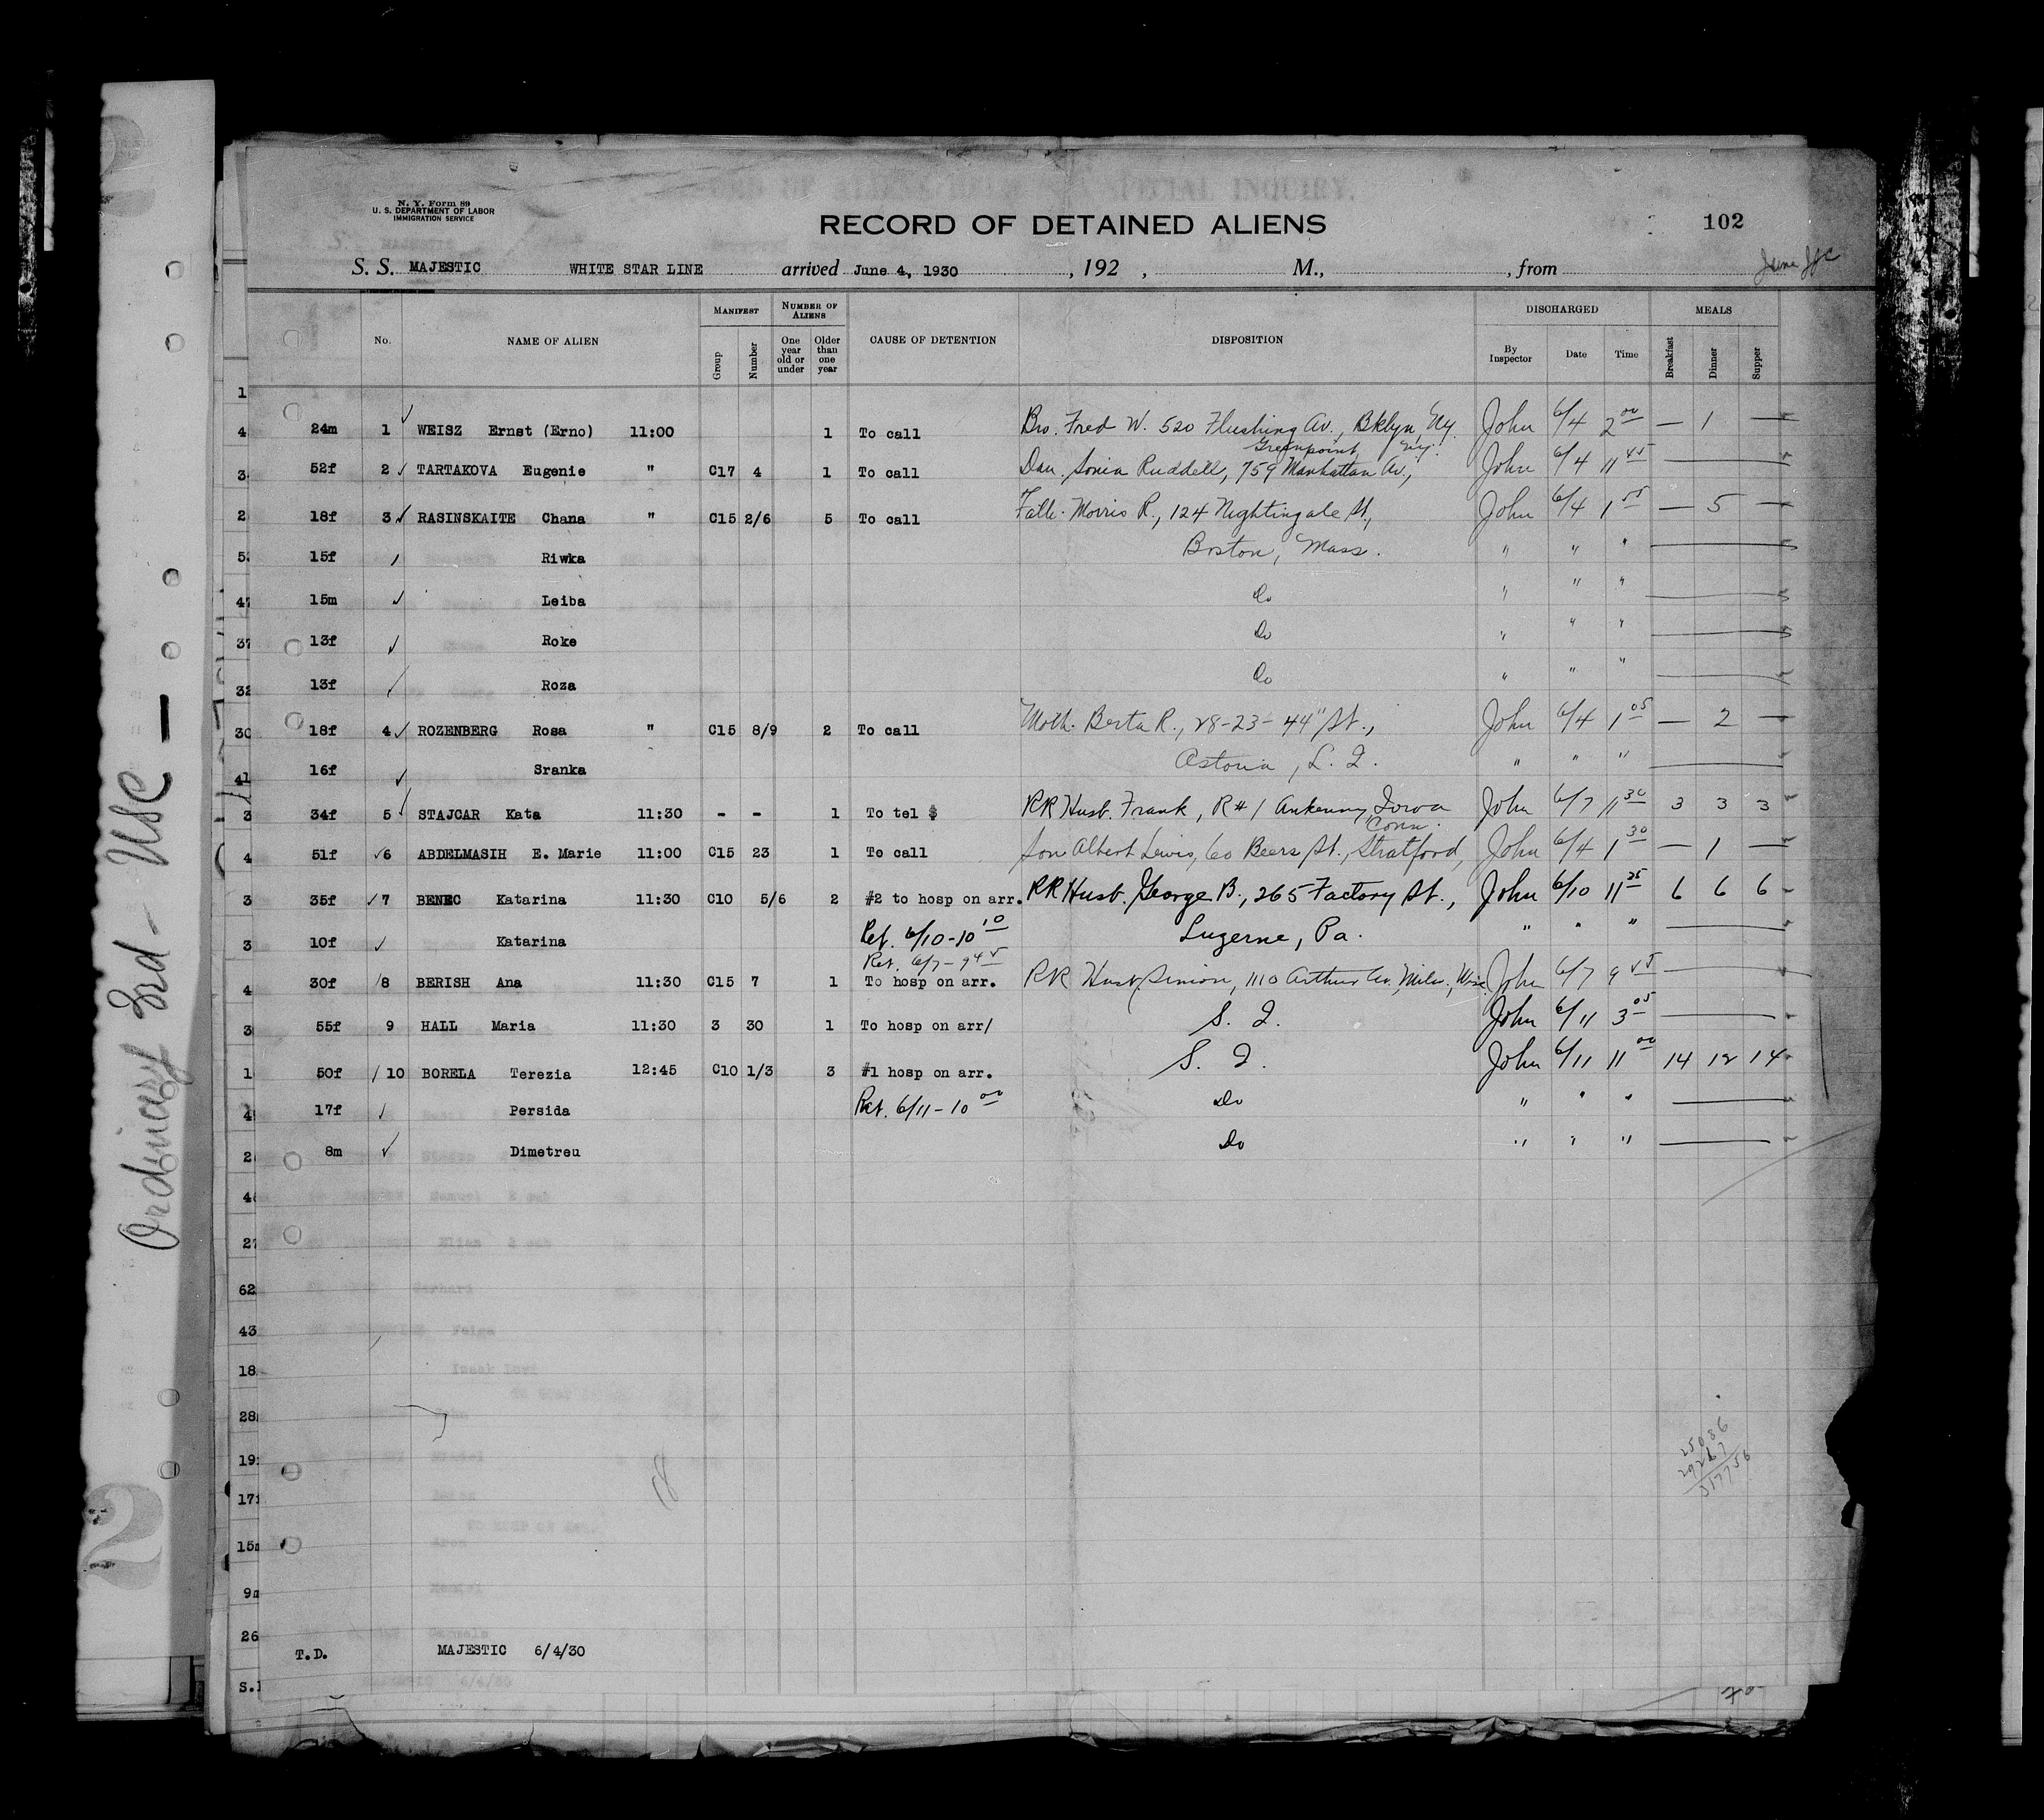 N. Y. Form 89
U. S. DEPARTMENT OF LABOR
IMMIGRATION SERVICE
RECORD OF DETAINED ALIENS
102
S. S. MAJESTIC WHITE STAR LINE arrived June 4, 1930 , 192 , M., , from
No. NAME OF ALIEN MANIFEST Group Number NUMBER OF ALIENS One year old or under Older than one year CAUSE OF DETENTION DISPOSITION DISCHARGED By Inspector Date Time MEALS Breakfast Dinner Supper
24m 1 WEISZ Ernst (Erno) 11:00 1 To call Bro. Fred W. 520 Flushing Av., Bklyn, Ny. John 6/4 2 00 — 1 —
Greenpoint, Ny.
52f 2 TARTAKOVA Eugenie " C17 4 1 To call Dau. Sonia Ruddell, 759 Manhattan Av., John 6/4 11 45
18f 3 RASINSKAITE Chana " C15 2/6 5 To call Fath. Morris R., 124 Nightingale St., John 6/4 1 55 — 5 —
15f Riwka Boston, Mass. " " "
15m Leiba Do " " "
13f Roke Do " " "
13f Roza Do " " "
18f 4 ROZENBERG Rosa " C15 8/9 2 To call Moth. Berta R., 28-23-44" St., John 6/4 1 05 — 2 —
16f Sranka Astoria, L. I. " " "
34f 5 STAJCAR Kata 11:30 - - 1 To tel $ RR Husb. Frank, R#1 Ankenny, Iowa John 6/7 11 30 3 3 3
Conn.
51f 6 ABDELMASIH E. Marie 11:00 C15 23 1 To call Son Albert Lewis, 60 Beers St., Stratford, John 6/4 1 30 — 1 —
35f 7 BENEC Katarina 11:30 C10 5/6 2 #2 to hosp on arr. RR Husb. George B., 265 Factory St., John 6/10 11 25 6 6 6
10f Katarina Ret. 6/10-10 10 Luzerne, Pa. " " "
Ret. 6/7-9 45
30f 8 BERISH Ana 11:30 C15 7 1 To hosp on arr. RR Husb. Simion, 1110 Arthur Av. Milw., Wisc. John 6/7 9 55
55f 9 HALL Maria 11:30 3 30 1 To hosp on arr/ S. I. John 6/11 3 05
50f 10 BORELA Terezia 12:45 C10 1/3 3 #1 hosp on arr. S. I. John 6/11 11 00 14 12 14
17f Persida Ret. 6/11-10 00 Do " " "
8m Dimetreu Do " " "
T.D. MAJESTIC 6/4/30
Ordinary 3rd - USC -
2